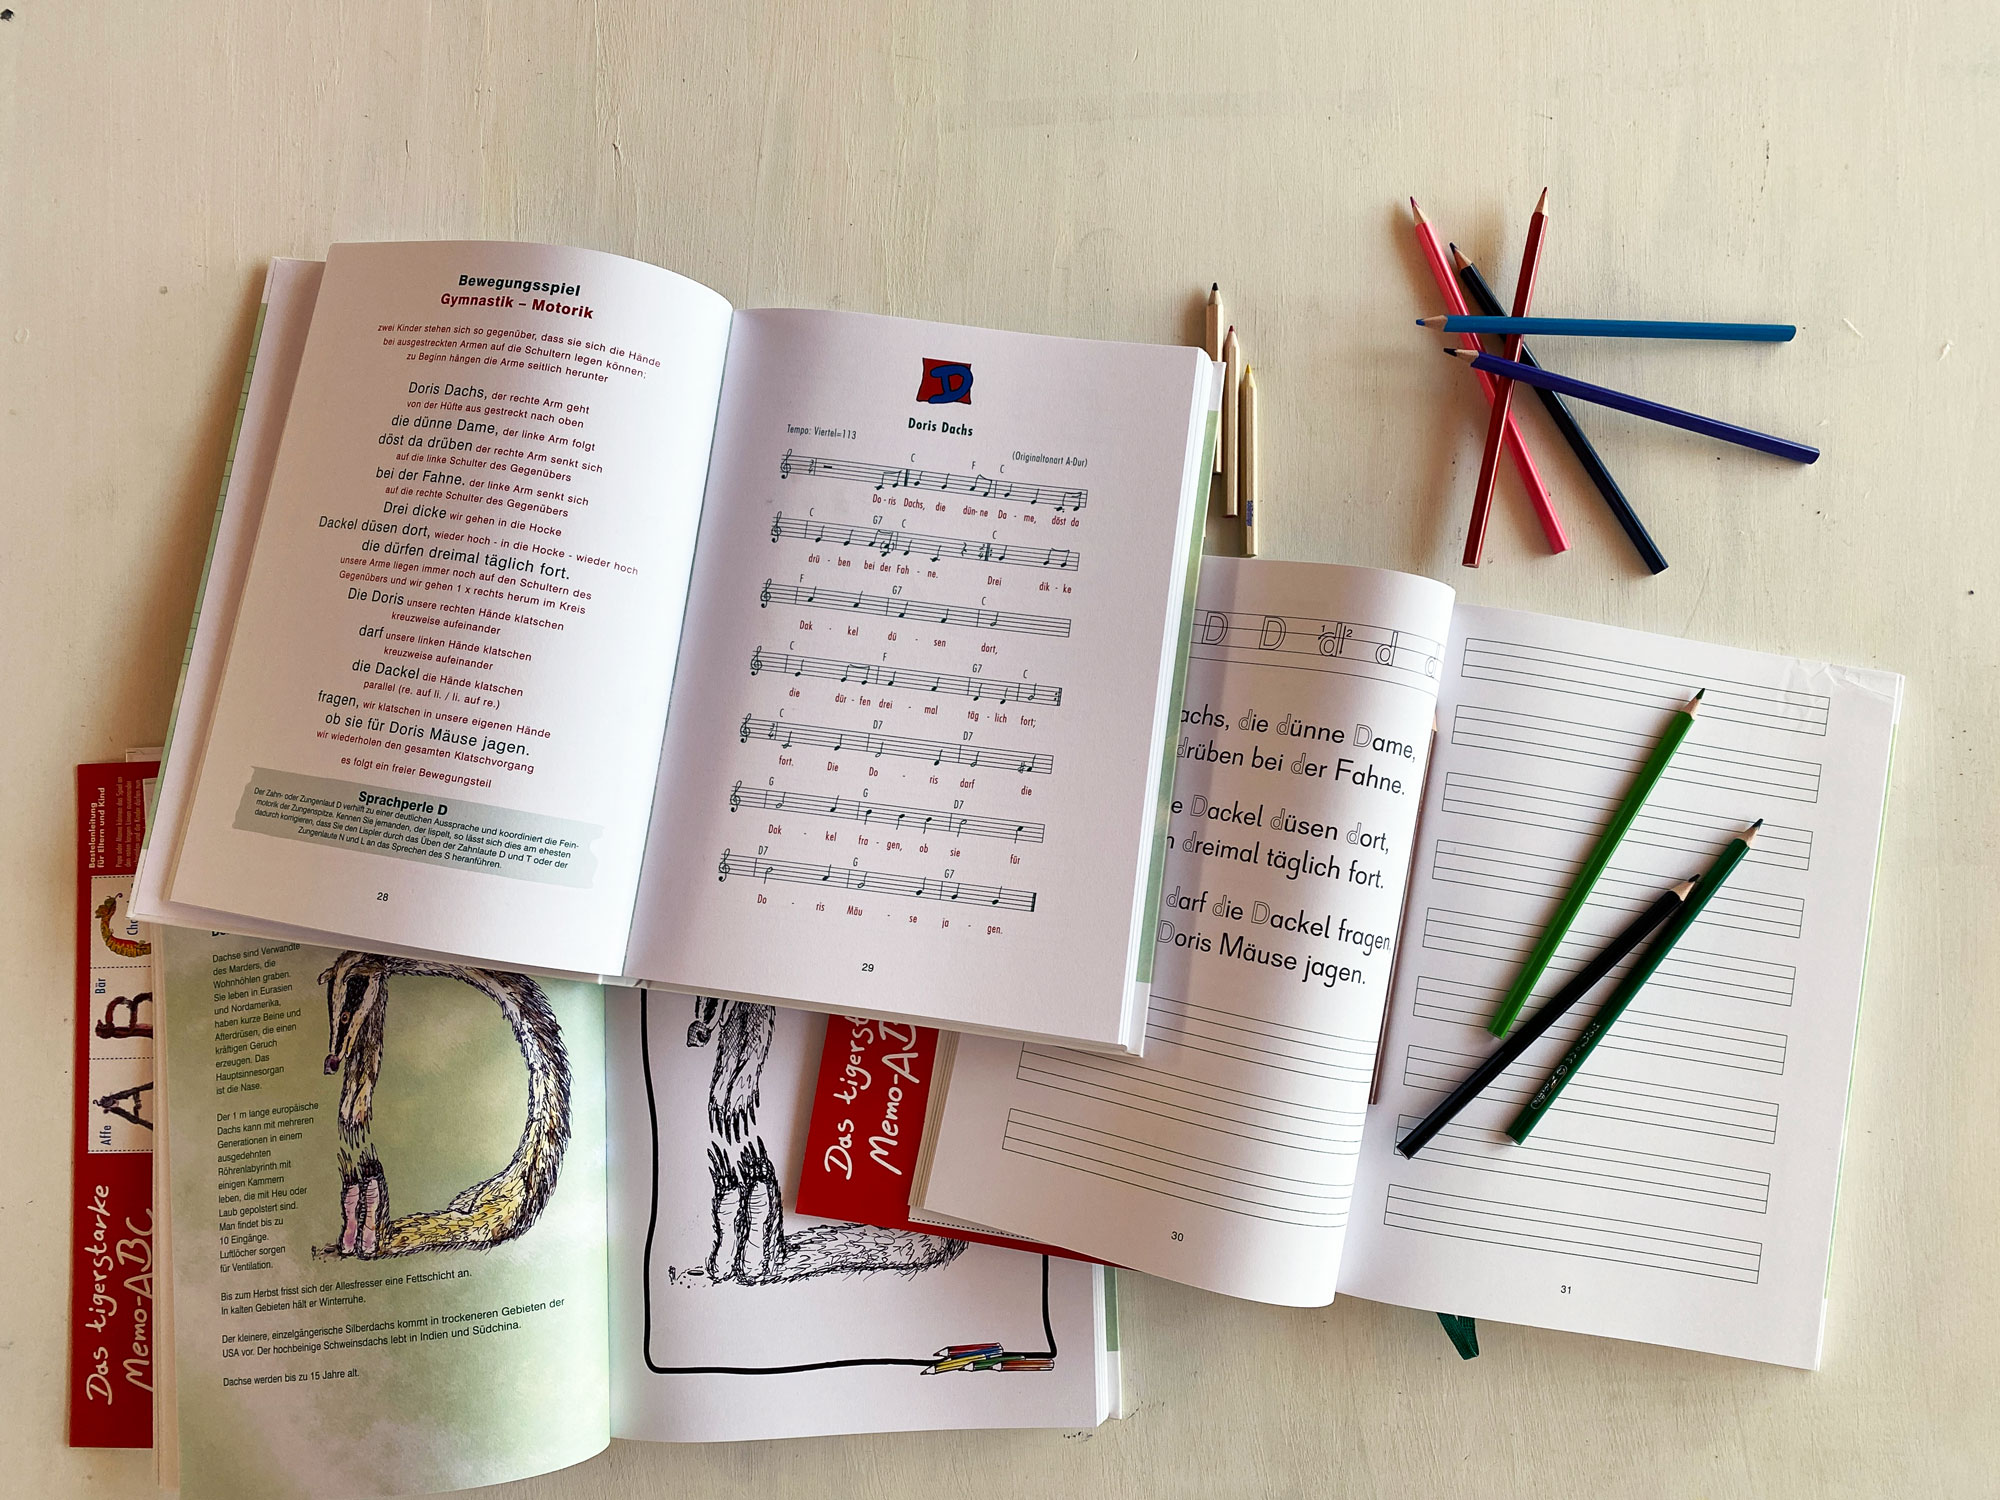 Bewegungsspiel
Gymnastik – Motorik
zwei Kinder stehen sich so gegenüber, dass sie sich die Hände
bei ausgestreckten Armen auf die Schultern legen können;
zu Beginn hängen die Arme seitlich herunter
Doris Dachs, der rechte Arm geht
von der Hüfte aus gestreckt nach oben
die dünne Dame, der linke Arm folgt
döst da drüben der rechte Arm senkt sich
auf die linke Schulter des Gegenübers
bei der Fahne. der linke Arm senkt sich
auf die rechte Schulter des Gegenübers
Drei dicke wir gehen in die Hocke
Dackel düsen dort, wieder hoch - in die Hocke - wieder hoch
die dürfen dreimal täglich fort.
unsere Arme liegen immer noch auf den Schultern des
Gegenübers und wir gehen 1 x rechts herum im Kreis
Die Doris unsere rechten Hände klatschen
kreuzweise aufeinander
darf unsere linken Hände klatschen
kreuzweise aufeinander
die Dackel die Hände klatschen
parallel (re. auf li. / li. auf re.)
fragen, wir klatschen in unsere eigenen Hände
ob sie für Doris Mäuse jagen.
wir wiederholen den gesamten Klatschvorgang
es folgt ein freier Bewegungsteil
Sprachperle D
Der Zahn- oder Zungenlaut D verhilft zu einer deutlichen Aussprache und koordiniert die Fein-
motorik der Zungenspitze. Kennen Sie jemanden, der lispelt, so lässt sich dies am ehesten
dadurch korrigieren, dass Sie den Lispler durch das Üben der Zahnlaute D und T oder der
Zungenlaute N und L an das Sprechen des S heranführen.
28
D
Doris Dachs
Tempo: Viertel=113
(Originaltonart A-Dur)
C F C
Do - ris Dachs, die dün - ne Da - me, döst da
C G7 C C
drü - ben bei der Fah - ne. Drei dik - ke
F G7 C
Dak - kel dü - sen dort,
C F G7 C
die dür - fen drei - mal täg - lich fort;
C D7 D7
fort. Die Do - ris darf die
G G D7
Dak - kel fra - gen, ob sie für
D7 G G7
Do - ris Mäu - se ja - gen.
29
D D 1 2 d d
achs, die dünne Dame,
drüben bei der Fahne.
e Dackel düsen dort,
n dreimal täglich fort.
darf die Dackel fragen
Doris Mäuse jagen.
30
31
Dachse sind Verwandte
des Marders, die
Wohnhöhlen graben.
Sie leben in Eurasien
und Nordamerika,
haben kurze Beine und
Afterdrüsen, die einen
kräftigen Geruch
erzeugen. Das
Hauptsinnesorgan
ist die Nase.
Der 1 m lange europäische
Dachs kann mit mehreren
Generationen in einem
ausgedehnten
Röhrenlabyrinth mit
einigen Kammern
leben, die mit Heu oder
Laub gepolstert sind.
Man findet bis zu
10 Eingänge.
Luftlöcher sorgen
für Ventilation.
Bis zum Herbst frisst sich der Allesfresser eine Fettschicht an.
In kalten Gebieten hält er Winterruhe.
Der kleinere, einzelgängerische Silberdachs kommt in trockeneren Gebieten der
USA vor. Der hochbeinige Schweinsdachs lebt in Indien und Südchina.
Dachse werden bis zu 15 Jahre alt.
Bastelanleitung
für Eltern und Kind
Bär
B
Affe
A
Das tigerstarke
Memo-ABC
Das tigers
Memo-AB